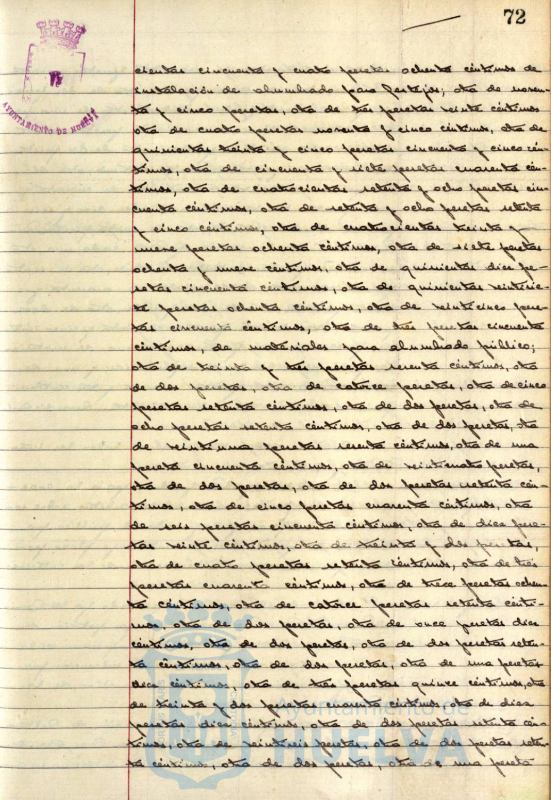 72
AYUNTAMIENTO DE HUELVA
cientas cincuenta y cuatro pesetas ochenta céntimos de
instalación de alumbrado para festejos; otra de noven-
ta y cinco pesetas, otra de tres pesetas veinte céntimos
otra de cuatro pesetas noventa y cinco céntimos, otra de
quinientas treinta y cinco pesetas cincuenta y cinco cén-
timos, otra de cincuenta y siete pesetas cuarenta cén-
timos, otra de cuatrocientas setenta y ocho pesetas cin-
cuenta céntimos, otra de setenta y ocho pesetas setenta
y cinco céntimos, otra de cuatrocientas treinta y
nueve pesetas ochenta céntimos, otra de siete pesetas
ochenta y nueve céntimos, otra de quinientas diez pe-
setas cincuenta céntimos, otra de quinientas veintisie-
te pesetas ochenta céntimos, otra de veinticinco pese-
tas cincuenta céntimos, otra de tres pesetas cincuenta
céntimos, de materiales para alumbrado público;
otra de treinta y tres pesetas sesenta céntimos, otra
de dos pesetas, otra de catorce pesetas, otra de cinco
pesetas setenta céntimos, otra de dos pesetas, otra de
ocho pesetas setenta céntimos, otra de dos pesetas, otra
de veintiuna pesetas sesenta céntimos, otra de una
peseta cincuenta céntimos, otra de veinticuatro pesetas,
otra de dos pesetas, otra de dos pesetas setenta cén-
timos, otra de cinco pesetas cuarenta céntimos, otra
de seis pesetas cincuenta céntimos, otra de diez pese-
tas veinte céntimos, otra de treinta y dos pesetas,
otra de cuatro pesetas setenta céntimos, otra de tres
pesetas cuarenta céntimos, otra de trece pesetas ochen-
ta céntimos, otra de catorce pesetas setenta cénti-
mos, otra de dos pesetas, otra de once pesetas diez
céntimos, otra de dos pesetas, otra de dos pesetas seten-
ta céntimos, otra de dos pesetas, otra de una pesetas
diez céntimos, otra de tres pesetas quince céntimos, otra
de treinta y dos pesetas cuarenta céntimos, otra de diez
pesetas diez céntimos, otra de dos pesetas setenta cén-
timos, otra de veintiseis pesetas, otra de dos pesetas seten-
ta céntimos, otra de dos pesetas, otra de una peseta
Ayuntamiento de
HUELVA